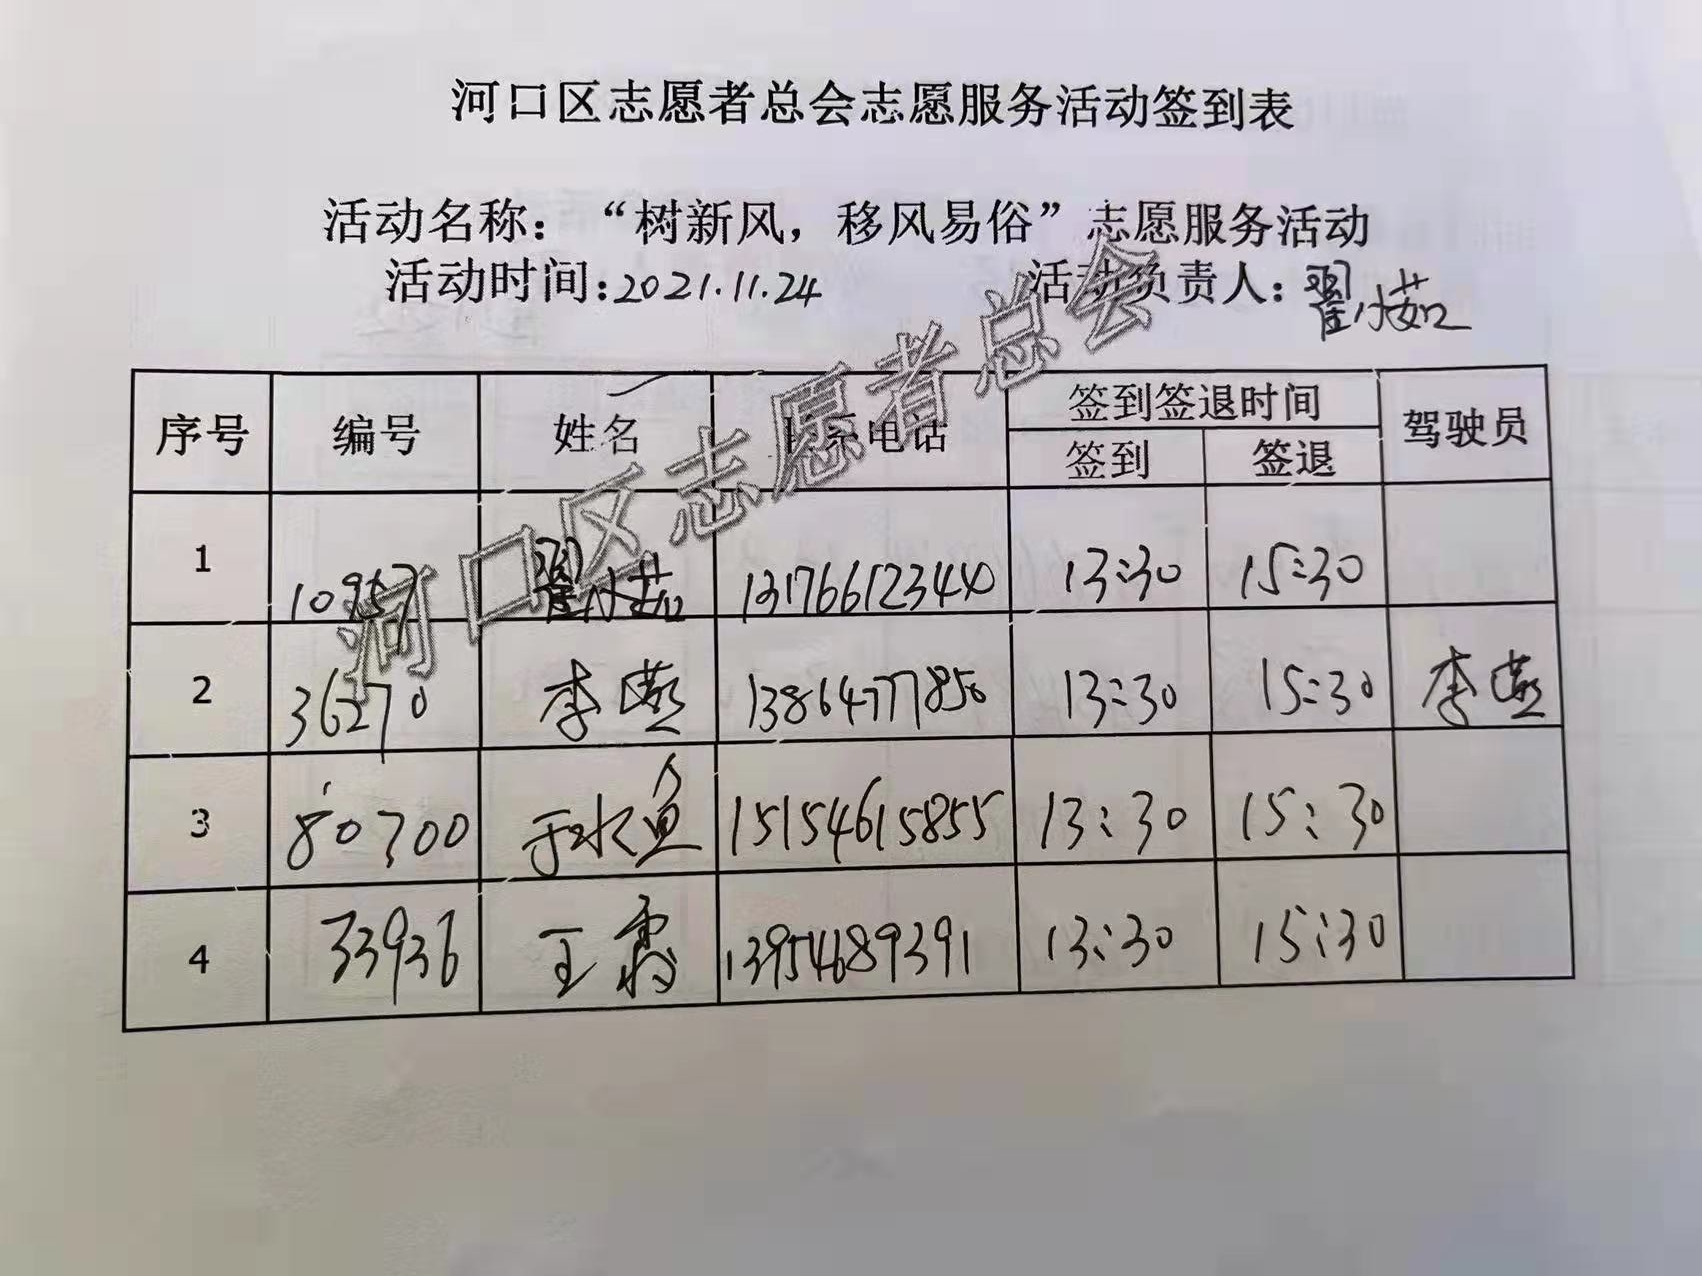 河口区志愿者总会志愿服务活动签到表
活动名称：“树新风，移风易俗”志愿服务活动
活动时间：2021.11.24 活动负责人：翟小茹
序号 编号 姓名 联系电话 签到签退时间 驾驶员
签到 签退
1 10957 翟小茹 13176612344 13:30 15:30
2 36270 李燕 13864777850 13:30 15:30 李燕
3 80700 于水鱼 15154615855 13:30 15:30
4 33936 王霞 13954689391 13:30 15:30
河口区志愿者总会